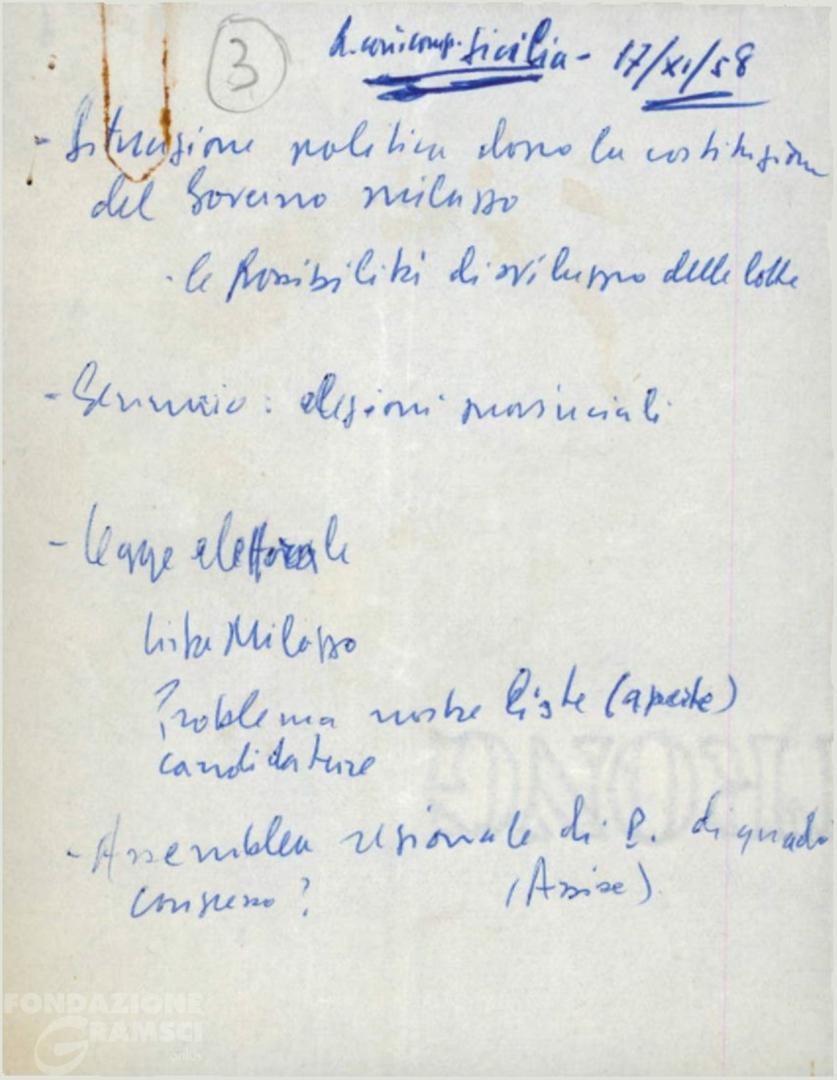 3
R. con i comp. Sicilia - 17/XI/58
- Situazione politica dopo la costituzione
del Governo Milazzo
- le possibilità di sviluppo delle lotte
- Gennaio: elezioni provinciali
- Legge elettorale
Lista Milazzo
Problema nostre liste (aperte)
candidature
- Assemblea regionale di P. di quadri
Congresso? (Assise)
FONDAZIONE
GRAMSCI
onlus